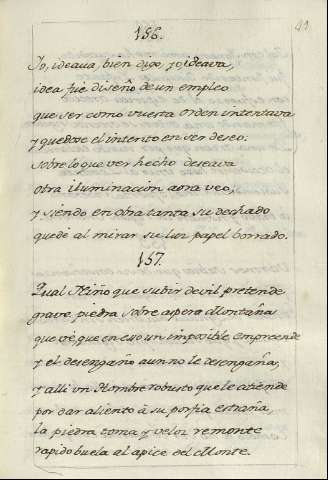 41
156.
Yo, ideaua, bien digo, yo ideava,
idea fue diseño de un empleo
que ser como vuestra Orden intentava
y quedose el intento en ser deseo:
sobre lo que ver hecho deseava
otra iluminacion aora veo,
y siendo en obra tanta su dechado
quedè al mirar su luz papel borrado.
157.
Qual Niño que subir devil pretende
grave piedra sobre aspera Montaña
que vè, que en eso un imposible emprende
y el desengaño aun no le desengaña,
y alli un Hombre robusto que le atiende
por dar aliento à su porfia estraña,
la piedra toma y veloz remonte
rapido buela al apice del Monte.